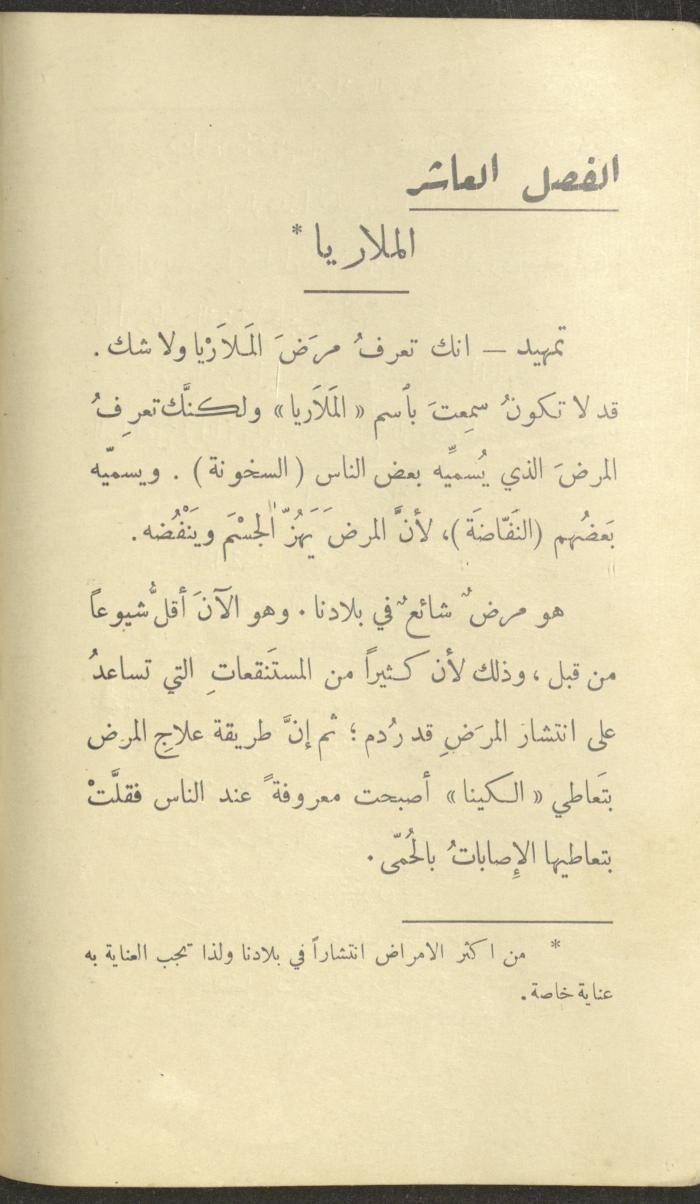 الفصل العاشر
الملاريا *
تمهيد — انك تعرفُ مرَضَ المَلاَرْيا ولا شك .
قد لا تكونُ سمِعتَ بأسم « المَلاَريا » ولكنَّك تعرِفُ
المرضَ الذي يُسميِّه بعض الناس ( السخونة ) . ويسميّه
بَعضُهم ( النَفّاضَة ) ، لأنَّ المرضَ يَهُزّ الجِسْمَ ويَنْفُضه .
هو مرضٌ شائعٌ في بلادنا . وهو الآنَ أقلُّ شيوعاً
من قبل ، وذلك لأن كثيراً من المستَنقعاتِ التي تساعدُ
على انتشار المرَضِ قد رُدم ؛ ثم إنَّ طريقة علاجِ المرض
بتَعاطي « الكينا » أصبحت معروفةً عند الناس فقلَّتْ
بتعاطيها الإِصاباتُ بالحُمّى .
* من اكثر الامراض انتشاراً في بلادنا ولذا تجب العناية به
عناية خاصة .